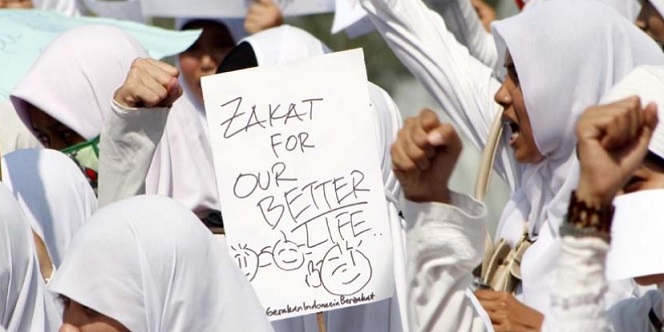 ZAKAT
FOR
OUR
BETTER
LIFE..
Gerakan Indonesia Berzakat